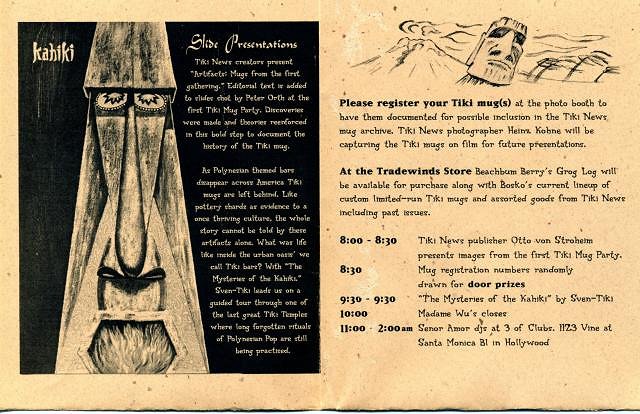 kahiki
Slide Presentations
Tiki News creators present
"Artifacts: Mugs from the first
gathering." Editorial text is added
to slides shot by Peter Orth at the
first Tiki Mug Party. Discoveries
were made and theories reenforced
in this bold step to document the
history of the Tiki mug.
As Polynesian themed bars
disappear across America Tiki
mugs are left behind. Like
pottery shards as evidence to a
once thriving culture, the whole
story cannot be told by these
artifacts alone. What was life
like inside the urban oasis' we
call Tiki bars? With "The
Mysteries of the Kahiki,"
Sven-Tiki leads us on a
guided tour through one of
the last great Tiki Temples
where long forgotten rituals
of Polynesian Pop are still
being practised.
Please register your Tiki mug(s) at the photo booth to
have them documented for possible inclusion in the Tiki News
mug archive. Tiki News photographer Heinz Kohne will be
capturing the Tiki mugs on film for future presentations.
At the Tradewinds Store Beachbum Berry's Grog Log will
be available for purchase along with Bosko's current lineup of
custom limited-run Tiki mugs and assorted goods from Tiki News
including past issues.
8:00 - 8:30 Tiki News publisher Otto von Stroheim
presents images from the first Tiki Mug Party.
8:30 Mug registration numbers randomly
drawn for door prizes
9:30 - 9:30 "The Mysteries of the Kahiki" by Sven-Tiki
10:00 Madame Wu's closes
11:00 - 2:00am Senor Amor djs at 3 of Clubs. 1123 Vine at
Santa Monica Bl in Hollywood